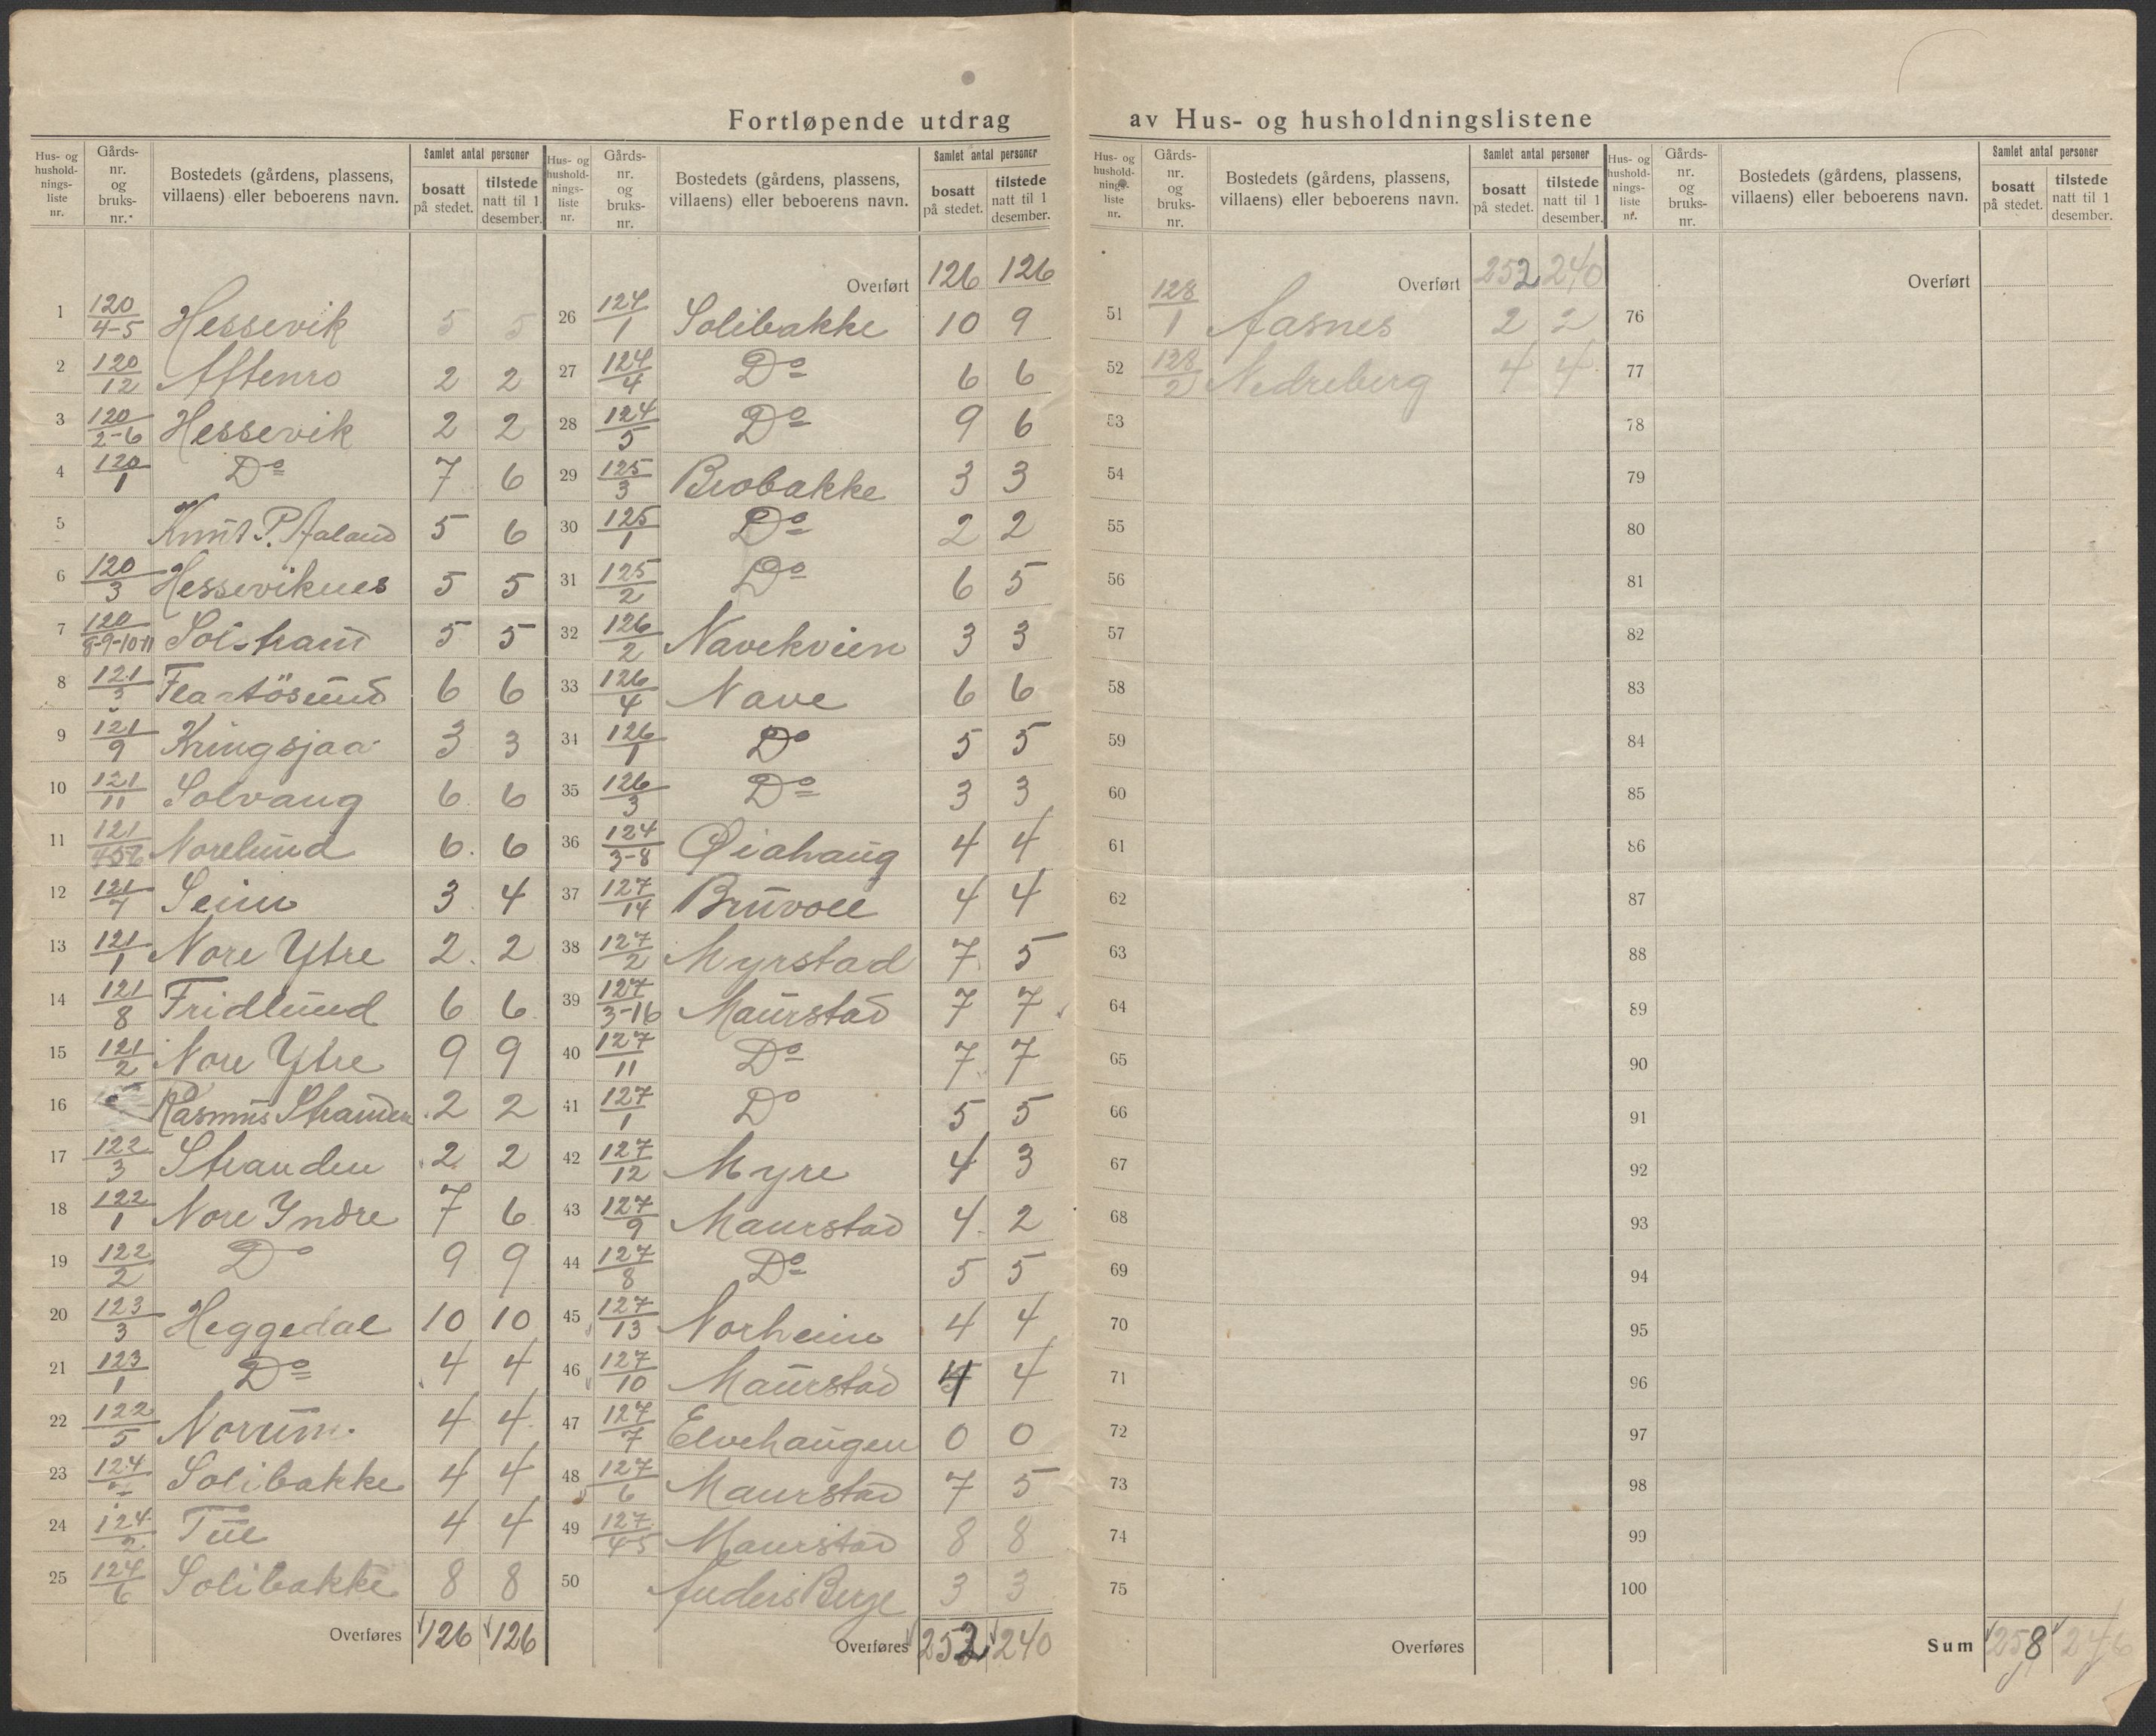 Fortløpende utdrag av Hus- og husholdningslistene
Hus- og hushold-nings-liste nr. Gårds-nr. og bruks-nr. Bostedets (gårdens, plassens, villaens) eller beboerens navn. Samlet antal personer bosatt på stedet. tilstede natt til 1 desember.
1 120/4-5 Hessevik 5 5
2 120/12 Aftenro 2 2
3 120/2-6 Hessevik 2 2
4 120/1 Do 7 6
5 Knut P. Aaland 5 6
6 120/3 Hesseviknes 5 5
7 120/8-9-10-11 Solstrand 5 5
8 121/3 Flatösund 6 6
9 121/9 Kringsjaa 3 3
10 121/11 Solvang 6 6
11 121/456 Norelund 6 6
12 121/7 Seim 3 4
13 121/1 Nore Ytre 2 2
14 121/8 Fridlund 6 6
15 121/2 Nore Ytre 9 9
16 Rasmus Stranden 2 2
17 122/3 Stranden 2 2
18 122/1 Nore Yndre 7 6
19 122/2 Do 9 9
20 123/3 Heggedal 10 10
21 123/1 Do 4 4
22 122/5 Norum 4 4
23 124 Solibakke 4 4
24 124/2 Tue 4 4
25 124/6 Solibakke 8 8
Overføres 126 126
Hus- og hushold-nings-liste nr. Gårds-nr. og bruks-nr. Bostedets (gårdens, plassens, villaens) eller beboerens navn. Samlet antal personer bosatt på stedet. tilstede natt til 1 desember.
Overført 126 126
26 124/1 Solibakke 10 9
27 124/4 Do 6 6
28 124/5 Do 9 6
29 125/3 Brobakke 3 3
30 125/1 Do 2 2
31 125/2 Do 6 5
32 126/2 Navekvien 3 3
33 126/4 Nave 6 6
34 126/1 Do 5 5
35 126/3 Do 3 3
36 124/3-8 Øiahaug 4 4
37 127/14 Bruvoll 4 4
38 127/2 Myrstad 7 5
39 127/3-16 Maurstad 7 7
40 127/11 Do 7 7
41 127/1 Do 5 5
42 127/12 Myre 4 3
43 127/9 Maurstad 4 2
44 127/8 Do 5 5
45 127/13 Norheim 4 4
46 127/10 Maurstad 4 4
47 127/7 Elvehaugen 0 0
48 127/6 Maurstad 7 5
49 127/4-5 Maurstad 8 8
50 Anders Berge 3 3
Overføres 252 240
Hus- og hushold-nings-liste nr. Gårds-nr. og bruks-nr. Bostedets (gårdens, plassens, villaens) eller beboerens navn. Samlet antal personer bosatt på stedet. tilstede natt til 1 desember.
Overført 252 240
51 128/1 Aasnes 2 2
52 128/2 Nedreberg 4 4
53
54
55
56
57
58
59
60
61
62
63
64
65
66
67
68
69
70
71
72
73
74
75
Overføres
Hus- og hushold-nings-liste nr. Gårds-nr. og bruks-nr. Bostedets (gårdens, plassens, villaens) eller beboerens navn. Samlet antal personer bosatt på stedet. tilstede natt til 1 desember.
Overført
76
77
78
79
80
81
82
83
84
85
86
87
88
89
90
91
92
93
94
95
96
97
98
99
100
Sum 258 246